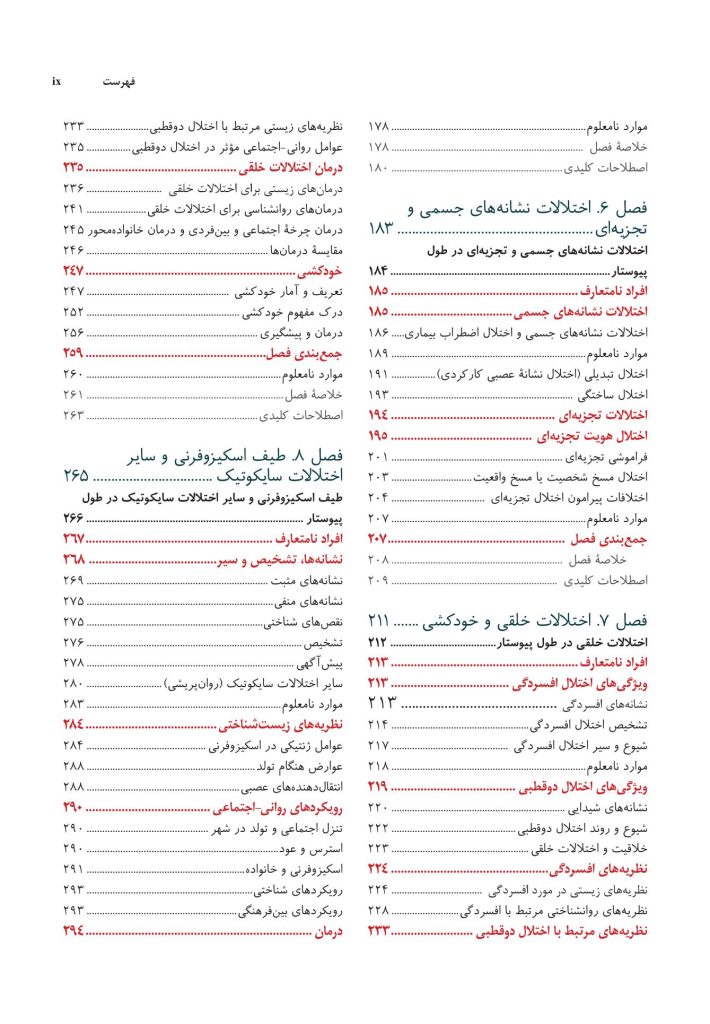 فهرست ix
موارد نامعلوم ۱۷۸
خلاصهٔ فصل ۱۷۸
اصطلاحات کلیدی ۱۸۰
فصل ۶. اختلالات نشانه‌های جسمی و
تجزیه‌ای ۱۸۳
اختلالات نشانه‌های جسمی و تجزیه‌ای در طول
پیوستار ۱۸۴
افراد نامتعارف ۱۸۵
اختلالات نشانه‌های جسمی ۱۸۵
اختلالات نشانه‌های جسمی و اختلال اضطراب بیماری ۱۸۶
موارد نامعلوم ۱۸۹
اختلال تبدیلی (اختلال نشانهٔ عصبی کارکردی) ۱۹۱
اختلال ساختگی ۱۹۳
اختلالات تجزیه‌ای ۱۹۴
اختلال هویت تجزیه‌ای ۱۹۵
فراموشی تجزیه‌ای ۲۰۱
اختلال مسخ شخصیت یا مسخ واقعیت ۲۰۳
اختلافات پیرامون اختلال تجزیه‌ای ۲۰۴
موارد نامعلوم ۲۰۷
جمع‌بندی فصل ۲۰۷
خلاصهٔ فصل ۲۰۸
اصطلاحات کلیدی ۲۰۹
فصل ۷. اختلالات خلقی و خودکشی ۲۱۱
اختلالات خلقی در طول پیوستار ۲۱۲
افراد نامتعارف ۲۱۳
ویژگی‌های اختلال افسردگی ۲۱۳
نشانه‌های افسردگی ۲۱۳
تشخیص اختلال افسردگی ۲۱۴
شیوع و سیر اختلال افسردگی ۲۱۷
موارد نامعلوم ۲۱۸
ویژگی‌های اختلال دوقطبی ۲۱۹
نشانه‌های شیدایی ۲۲۰
شیوع و روند اختلال دوقطبی ۲۲۲
خلاقیت و اختلالات خلقی ۲۲۳
نظریه‌های افسردگی ۲۲۴
نظریه‌های زیستی در مورد افسردگی ۲۲۴
نظریه‌های روانشناختی مرتبط با افسردگی ۲۲۸
نظریه‌های مرتبط با اختلال دوقطبی ۲۳۳
نظریه‌های زیستی مرتبط با اختلال دوقطبی ۲۳۳
عوامل روانی-اجتماعی مؤثر در اختلال دوقطبی ۲۳۵
درمان اختلالات خلقی ۲۳۵
درمان‌های زیستی برای اختلالات خلقی ۲۳۶
درمان‌های روانشناسی برای اختلالات خلقی ۲۴۱
درمان چرخهٔ اجتماعی و بین‌فردی و درمان خانواده‌محور ۲۴۵
مقایسهٔ درمان‌ها ۲۴۶
خودکشی ۲۴۷
تعریف و آمار خودکشی ۲۴۷
درک مفهوم خودکشی ۲۵۲
درمان و پیشگیری ۲۵۶
جمع‌بندی فصل ۲۵۹
موارد نامعلوم ۲۶۰
خلاصهٔ فصل ۲۶۱
اصطلاحات کلیدی ۲۶۳
فصل ۸. طیف اسکیزوفرنی و سایر
اختلالات سایکوتیک ۲۶۵
طیف اسکیزوفرنی و سایر اختلالات سایکوتیک در طول
پیوستار ۲۶۶
افراد نامتعارف ۲۶۷
نشانه‌ها، تشخیص و سیر ۲۶۸
نشانه‌های مثبت ۲۶۹
نشانه‌های منفی ۲۷۵
نقص‌های شناختی ۲۷۵
تشخیص ۲۷۶
پیش‌آگهی ۲۷۸
سایر اختلالات سایکوتیک (روان‌پریشی) ۲۸۰
موارد نامعلوم ۲۸۳
نظریه‌های زیست‌شناختی ۲۸۴
عوامل ژنتیکی در اسکیزوفرنی ۲۸۴
عوارض هنگام تولد ۲۸۸
انتقال‌دهنده‌های عصبی ۲۸۸
رویکردهای روانی-اجتماعی ۲۹۰
تنزل اجتماعی و تولد در شهر ۲۹۰
استرس و عود ۲۹۰
اسکیزوفرنی و خانواده ۲۹۱
رویکردهای شناختی ۲۹۳
رویکردهای بین‌فرهنگی ۲۹۳
درمان ۲۹۴